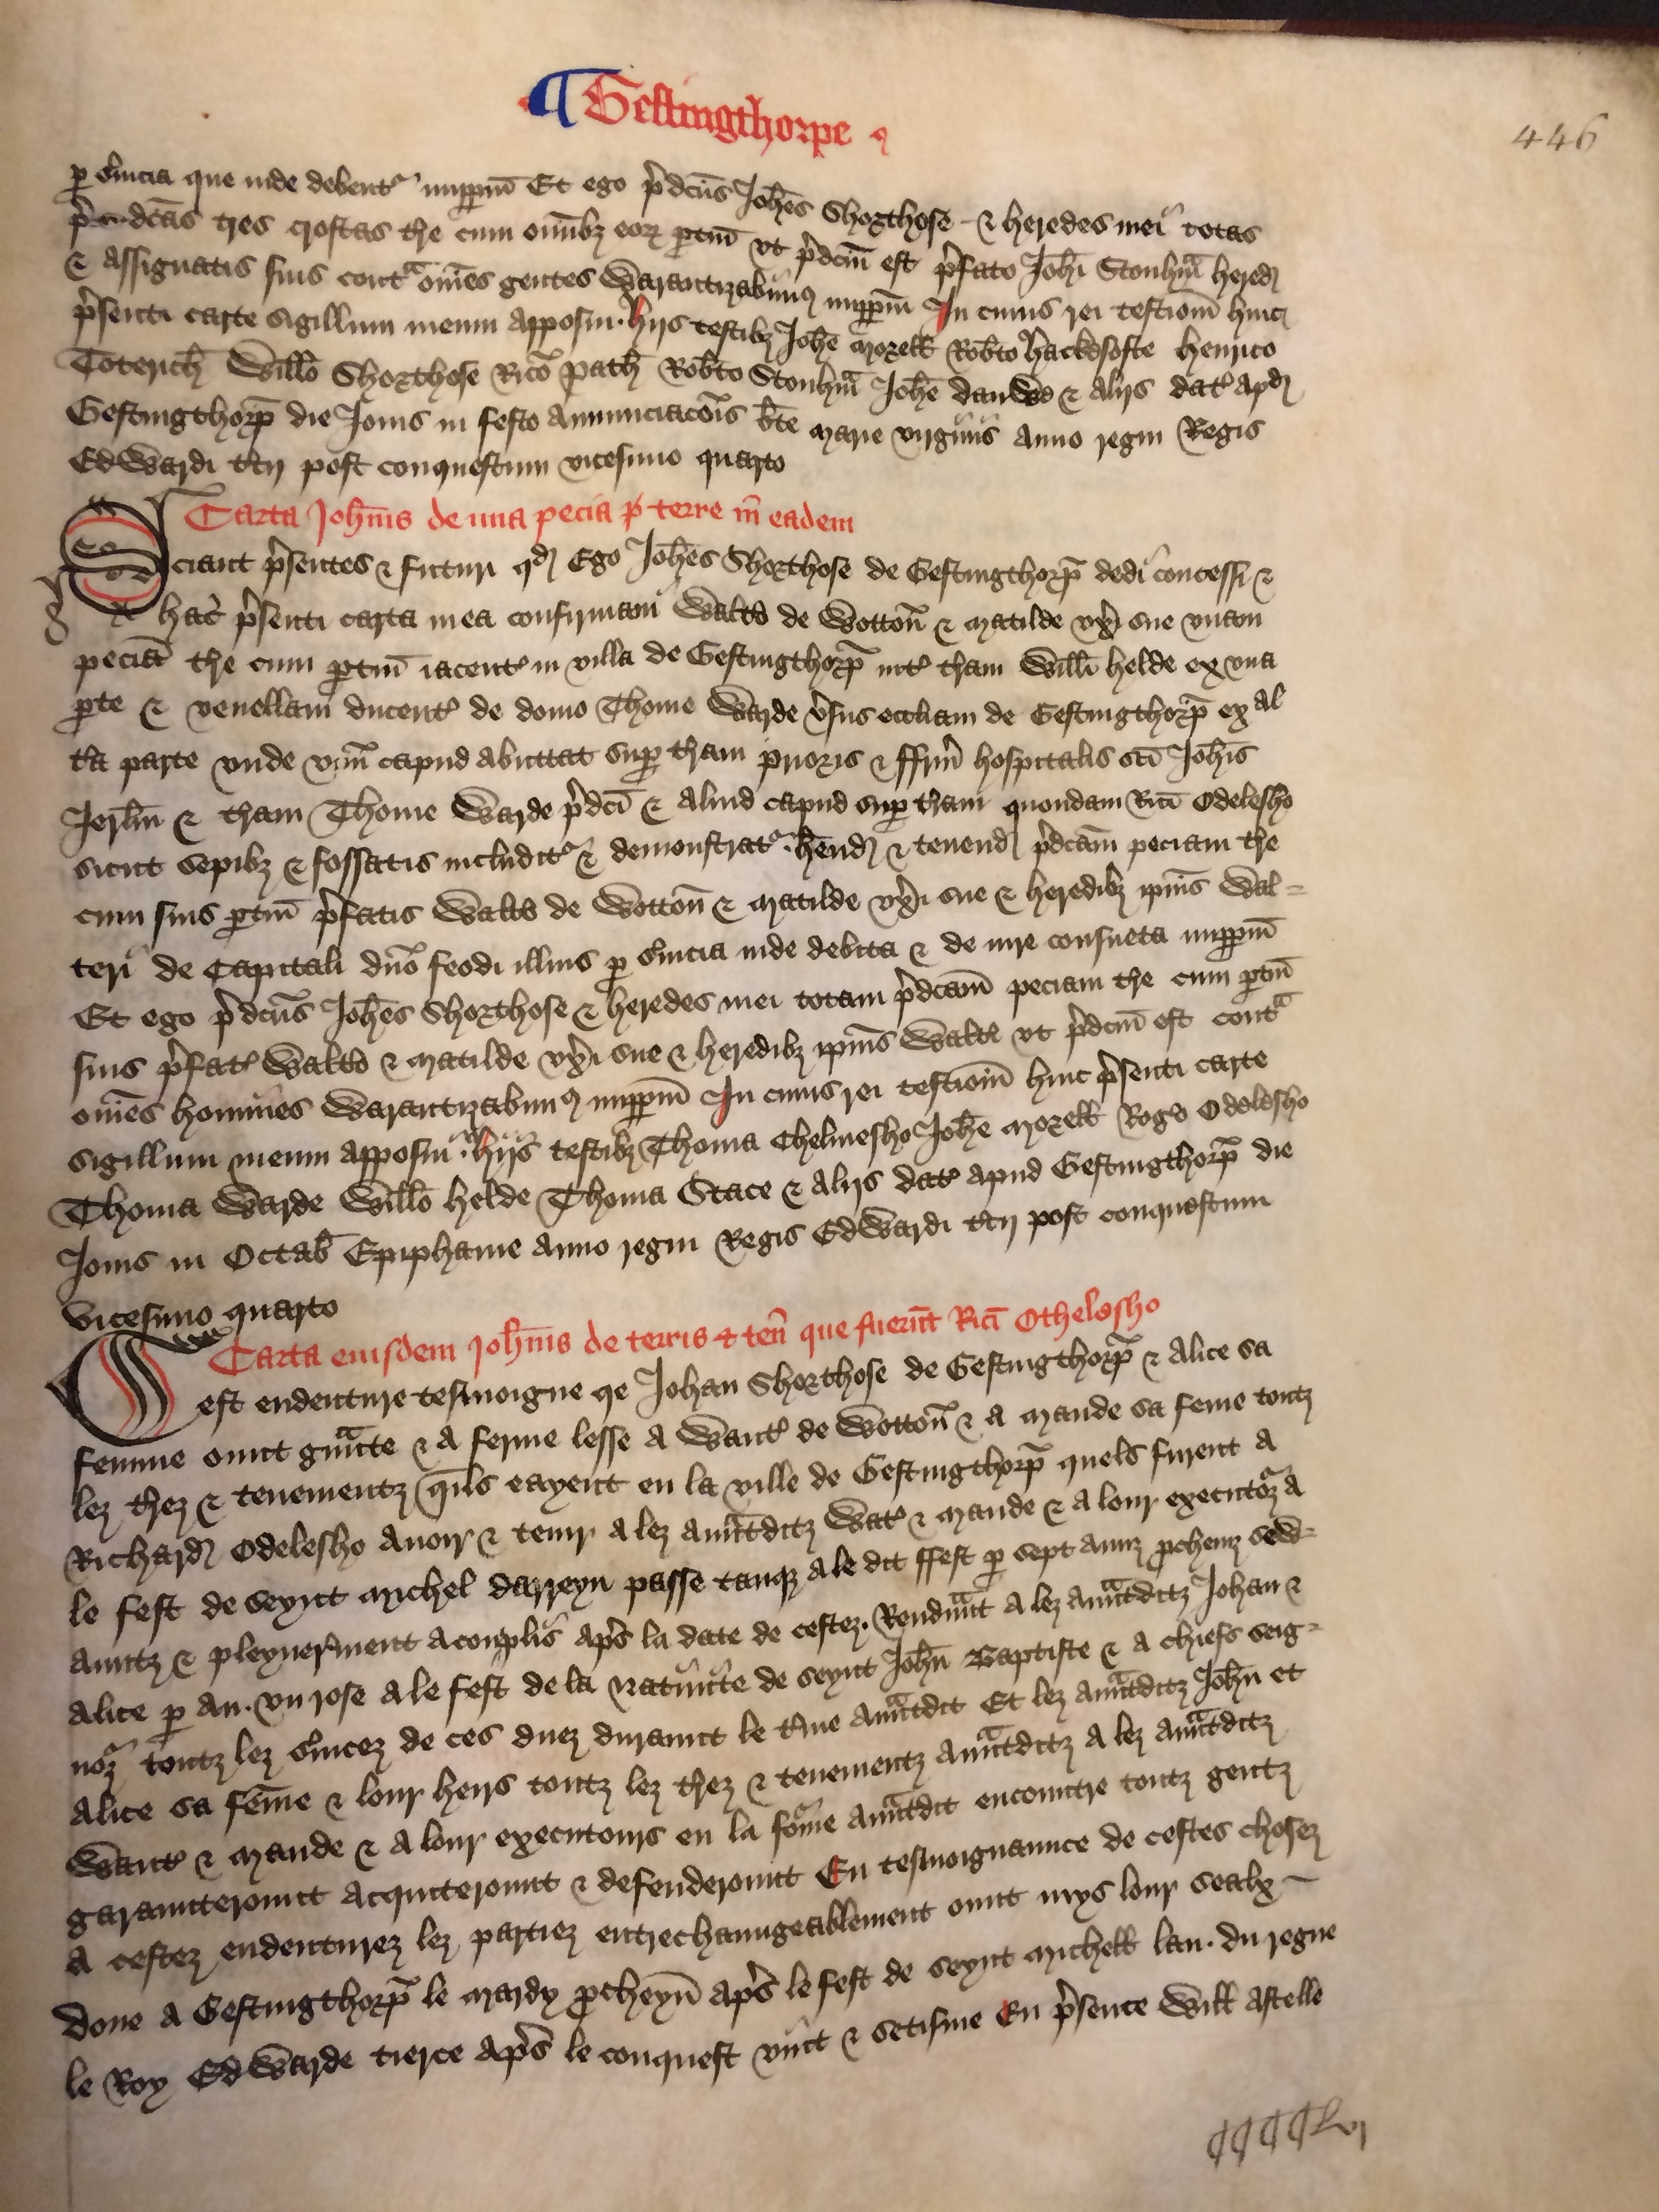 ¶ Gestingthorpe
446
p̱ s̃uicia que inde debent᷑ imꝑpm̄ Et ego p̃dcūs Joħes Shorthose & heredes mei totas
p̃dcās tres croftas t̃re cum om̄ibȝ eoꝝ ꝑtin̄ vt p̃dcm̄ est p̃fato Joħi Stonhm̄ hered
& assignatis suis contª om̄es gentes Warantizabimꝰ imꝑpm̄ In cuius rei testiom̄ huic
p̃senti carte sigillum meum apposui. hijs testibȝ Joħe Morell Roƀto hackesofte henrico
Coterich Willo Shorthose Rico path Roƀto Stonhm̄ Joħe danwd & alijs dat᷑ apd
Gestingthorp̄ die Jouis in festo Annunciacōis ƀte Marie virginis Anno regni Regis
Edwardi t̃cij post conquestum vicesimo quarto
Carta Joħnis de una pecia terre in eadem
Sciant p̃sentes & futuri qd Ego Joħes Shorthose de Gestingthorp̄ dedi concessi &
hac p̃senti carta mea confirmaui Walto de Wotton̄ & Matilde vx̃i sue vnam
peciā t̃re cum ꝑtin̄ iacent᷑ in villa de Gestingthorp̄ int᷑ t̃ram Willi helde ex vna
ꝑte & venellam ducent᷑ de domo Thome Warde ṽsus eccliam de Gestingthorp̄ ex al
t̃a parte vnde vnū capud abuttat suꝑ t̃ram prioris & ffrm̄ hospitalis sc̄i Joħis
Jerl̄m & t̃ram Thome Warde p̃dci & aliud capud suꝑ t̃ram quondam Rici Odelesho
sicut sepibȝ & fossatis includit᷑ & demonstrat᷑. hend & tenend p̃dcam peciam t̃re
cum suis ꝑtin̄ p̃fatis Walto de Wotton̄ & Matilde vx̃i sue & heredibȝ ipius Wal=
teri de Capitali dn̄o feodi illius ꝑ s̃uicia inde debita & de iure consueta imꝑpm̄
Et ego p̃dcūs Joħes Shorthose & heredes mei totam p̃dcam peciam t̃re cum ꝑtin̄
suis p̃fat᷑ Walto & Matilde vx̃i sue & heredibȝ ipius Walti vt p̃dcm̄ est contª
om̄es homines Warantizabimꝰ imꝑpm̄ In cuius rei testioīm huic p̃senti carte
sigillum meum apposui. hijs testibȝ Thoma Chelmesho Joħe Morell Rogo Odelesho
Thoma Warde Willo helde Thoma Stace & alijs dat᷑ apud Gestingthorp̄ die
Jouis in Octab̄ Epiphanie Anno regni Regis Edwardi t̃cij post conquestum
vicesimo quarto
Carta eiusdem Joħnis de terris & ten̄ que fuerūt Rici Othelesho
Cest endenture tesmoigne qe Johan Shorthose de Gestingthorp̄ & Alice sa
femme ount gªnte & a ferme lesse a Waut᷑ de Wotton̄ & a Maude sa feme toutȝ
leȝ t̃reȝ & tenementȝ qils eayent en la ville de Gestingthorp̄ quels furent a
Richard Odelesho Auoir & tenir a leȝ auªntditȝ Wat᷑ & Maude & a lour executoȝ a
le fest de seynt Michel darreyn passe tanqȝ a le dit ffest ꝑ sept annȝ ꝓchenȝ sew=
auntȝ & pleynerment acomplis ap̃s la date de cesteȝ. Rendªnt a leȝ auªntditȝ Johan &
Alice ꝑ an. vn rose a le fest de la Natiuite de seynt Joħn Baptiste & a chiefs seig=
noȝ toutȝ leȝ s̃uiceȝ de ces dueȝ duraunt le t̃me auªntdit Et leȝ auªntditȝ Joħn et
Alice sa fēme & lour heirs toutȝ leȝ t̃reȝ & tenementȝ auªntditȝ a leȝ auªntditȝ
Waut᷑ & Maude & a lour executours en la fo᷑me auªntdit encountre toutȝ gentȝ
garaunterount acquiterount & defenderount En tesmoignaunce de cestes choseȝ
a cesteȝ endentureȝ leȝ partieȝ entrechaungeablement ount mys lour sealx
Done a Gestingthorp̄ le Mardy ꝓcheyn̄ ap̃s le fest de seynt Michell lan. du regne
le Roy Edwarde tierce ap̃s le conquest vint & setisme En p̃sence Will astelle